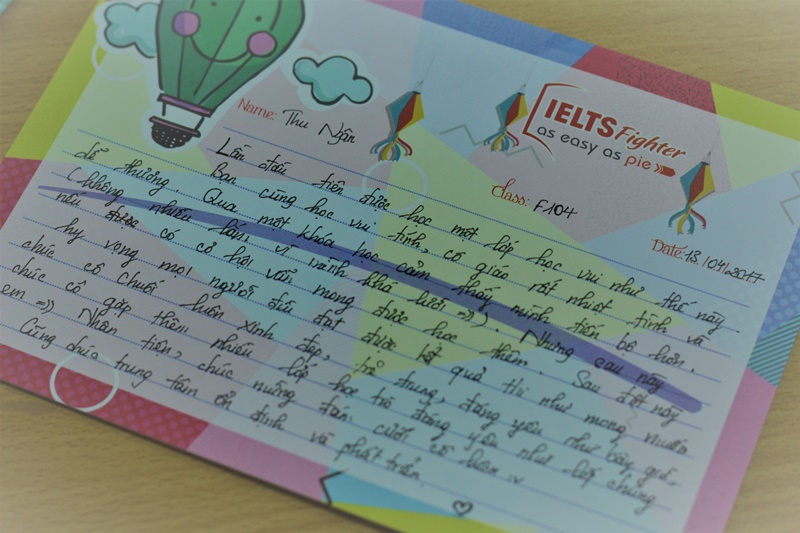 Name: Thu Ngân
IELTS Fighter
as easy as pie
Class: F104
Date: 13/04/2017
Lần đầu tiên được học một lớp học vui như thế này.
Bạn cùng học vui tính, cô giáo rất nhiệt tình và
dễ thương. Qua một khóa học cảm thấy mình tiến bộ hơn.
(không nhiều lắm, vì mình khá lười =)). Nhưng sau này
nếu được có cơ hội vẫn mong được học thêm. Sau đợt này
hy vọng mọi người đều đạt được kết quả thi như mong muốn
chúc cô Chuối luôn xinh đẹp, trẻ trung, đáng yêu như bây giờ.
chúc cô gặp thêm nhiều lớp học trò đáng yêu như lớp chúng
em =)) Nhân tiện, chúc mừng đám cưới cô luôn :v
Cũng chúc trung tâm ổn định và phát triển.